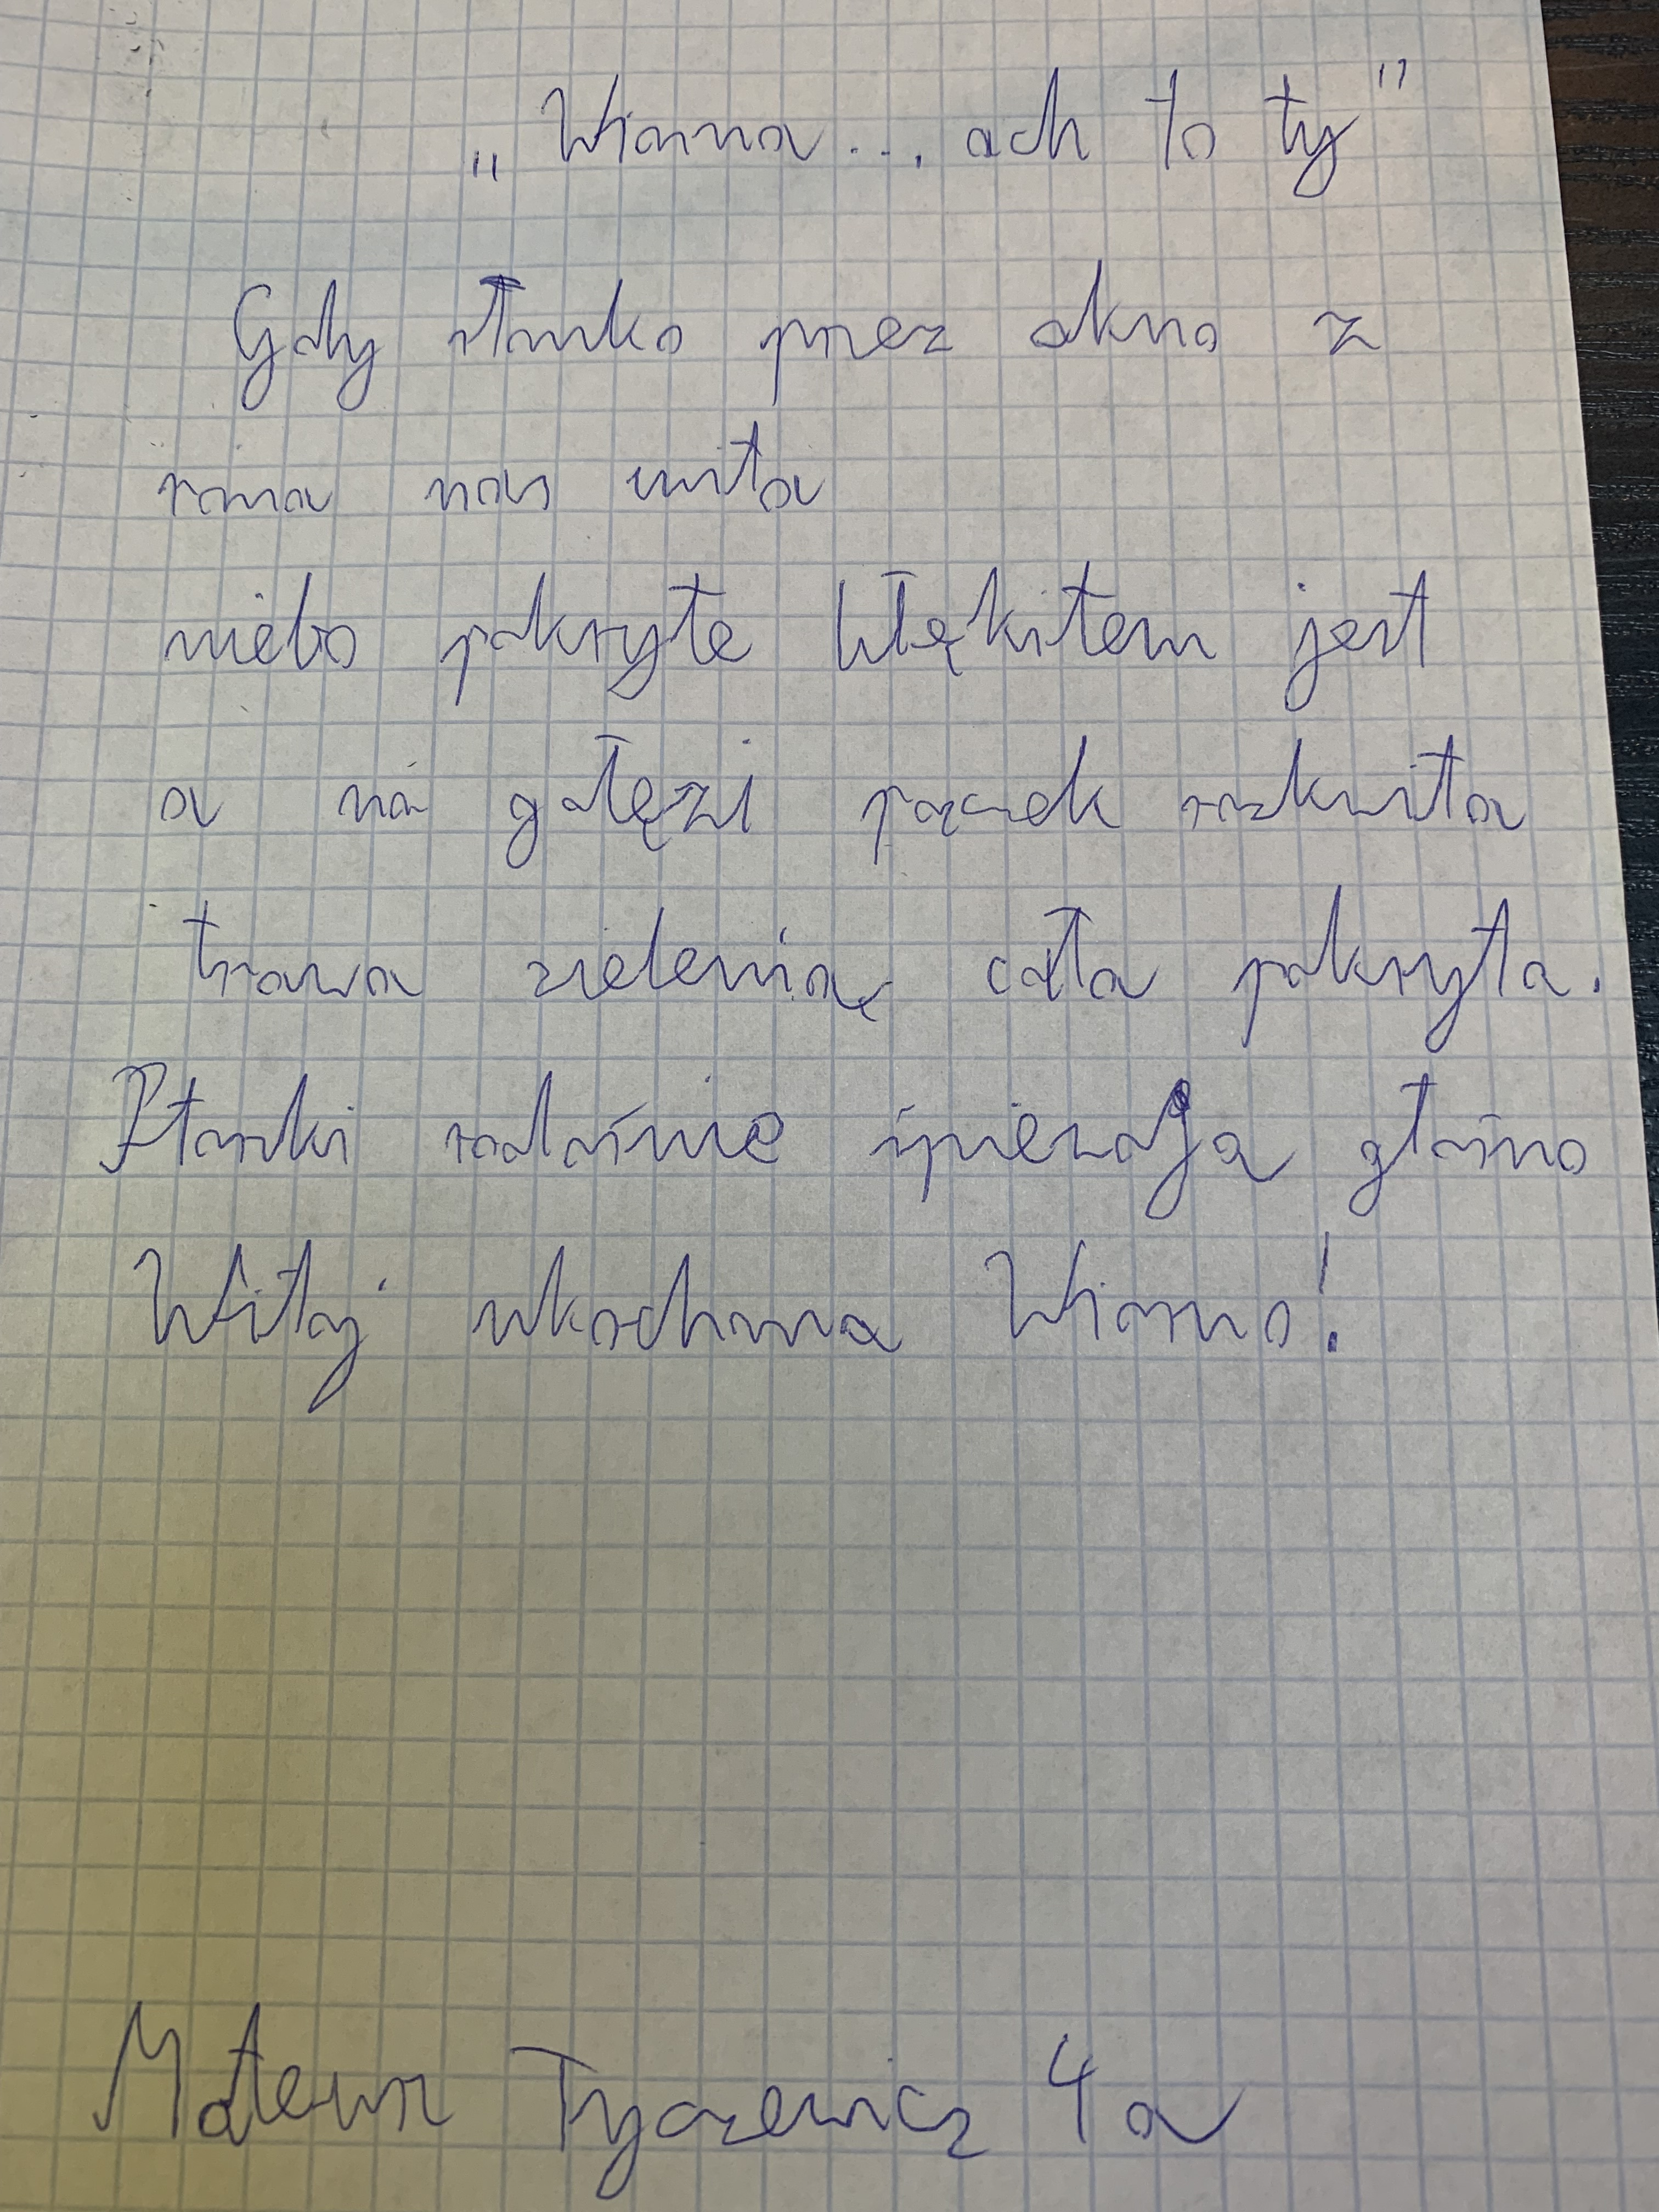 „Wiosna... ach to ty"
Gdy słonko przez okno z
rana nas wita
niebo pokryte błękitem jest
a na gałęzi pączek rozkwita
trawa zielenią cała pokryta.
Ptaszki radośnie śpiewają głośno
Witaj ukochana Wiosno!
Mateusz Tyczewicz 4a